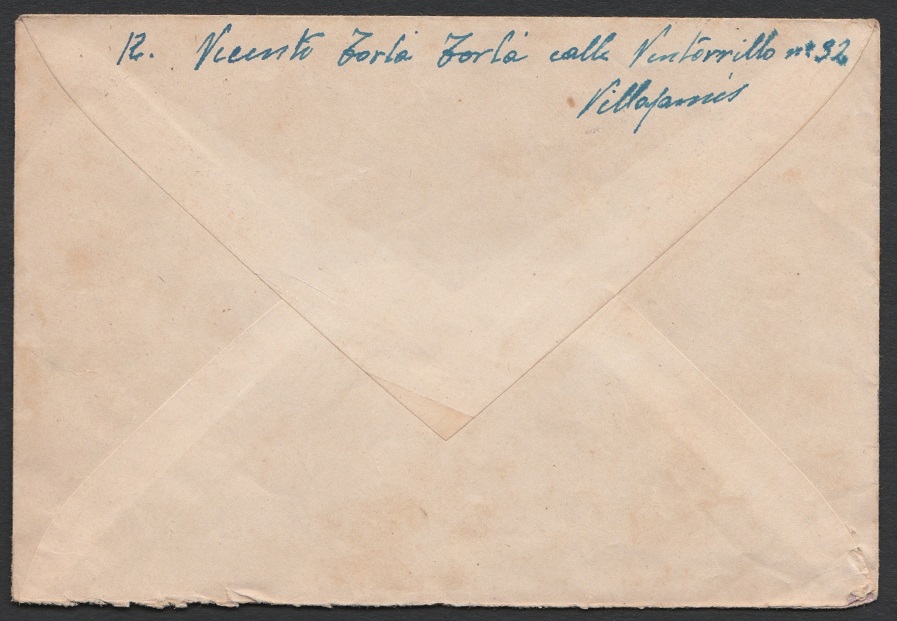 R. Vicente Torlá Torlá calle Ventorrillo nº 32
Villafamés